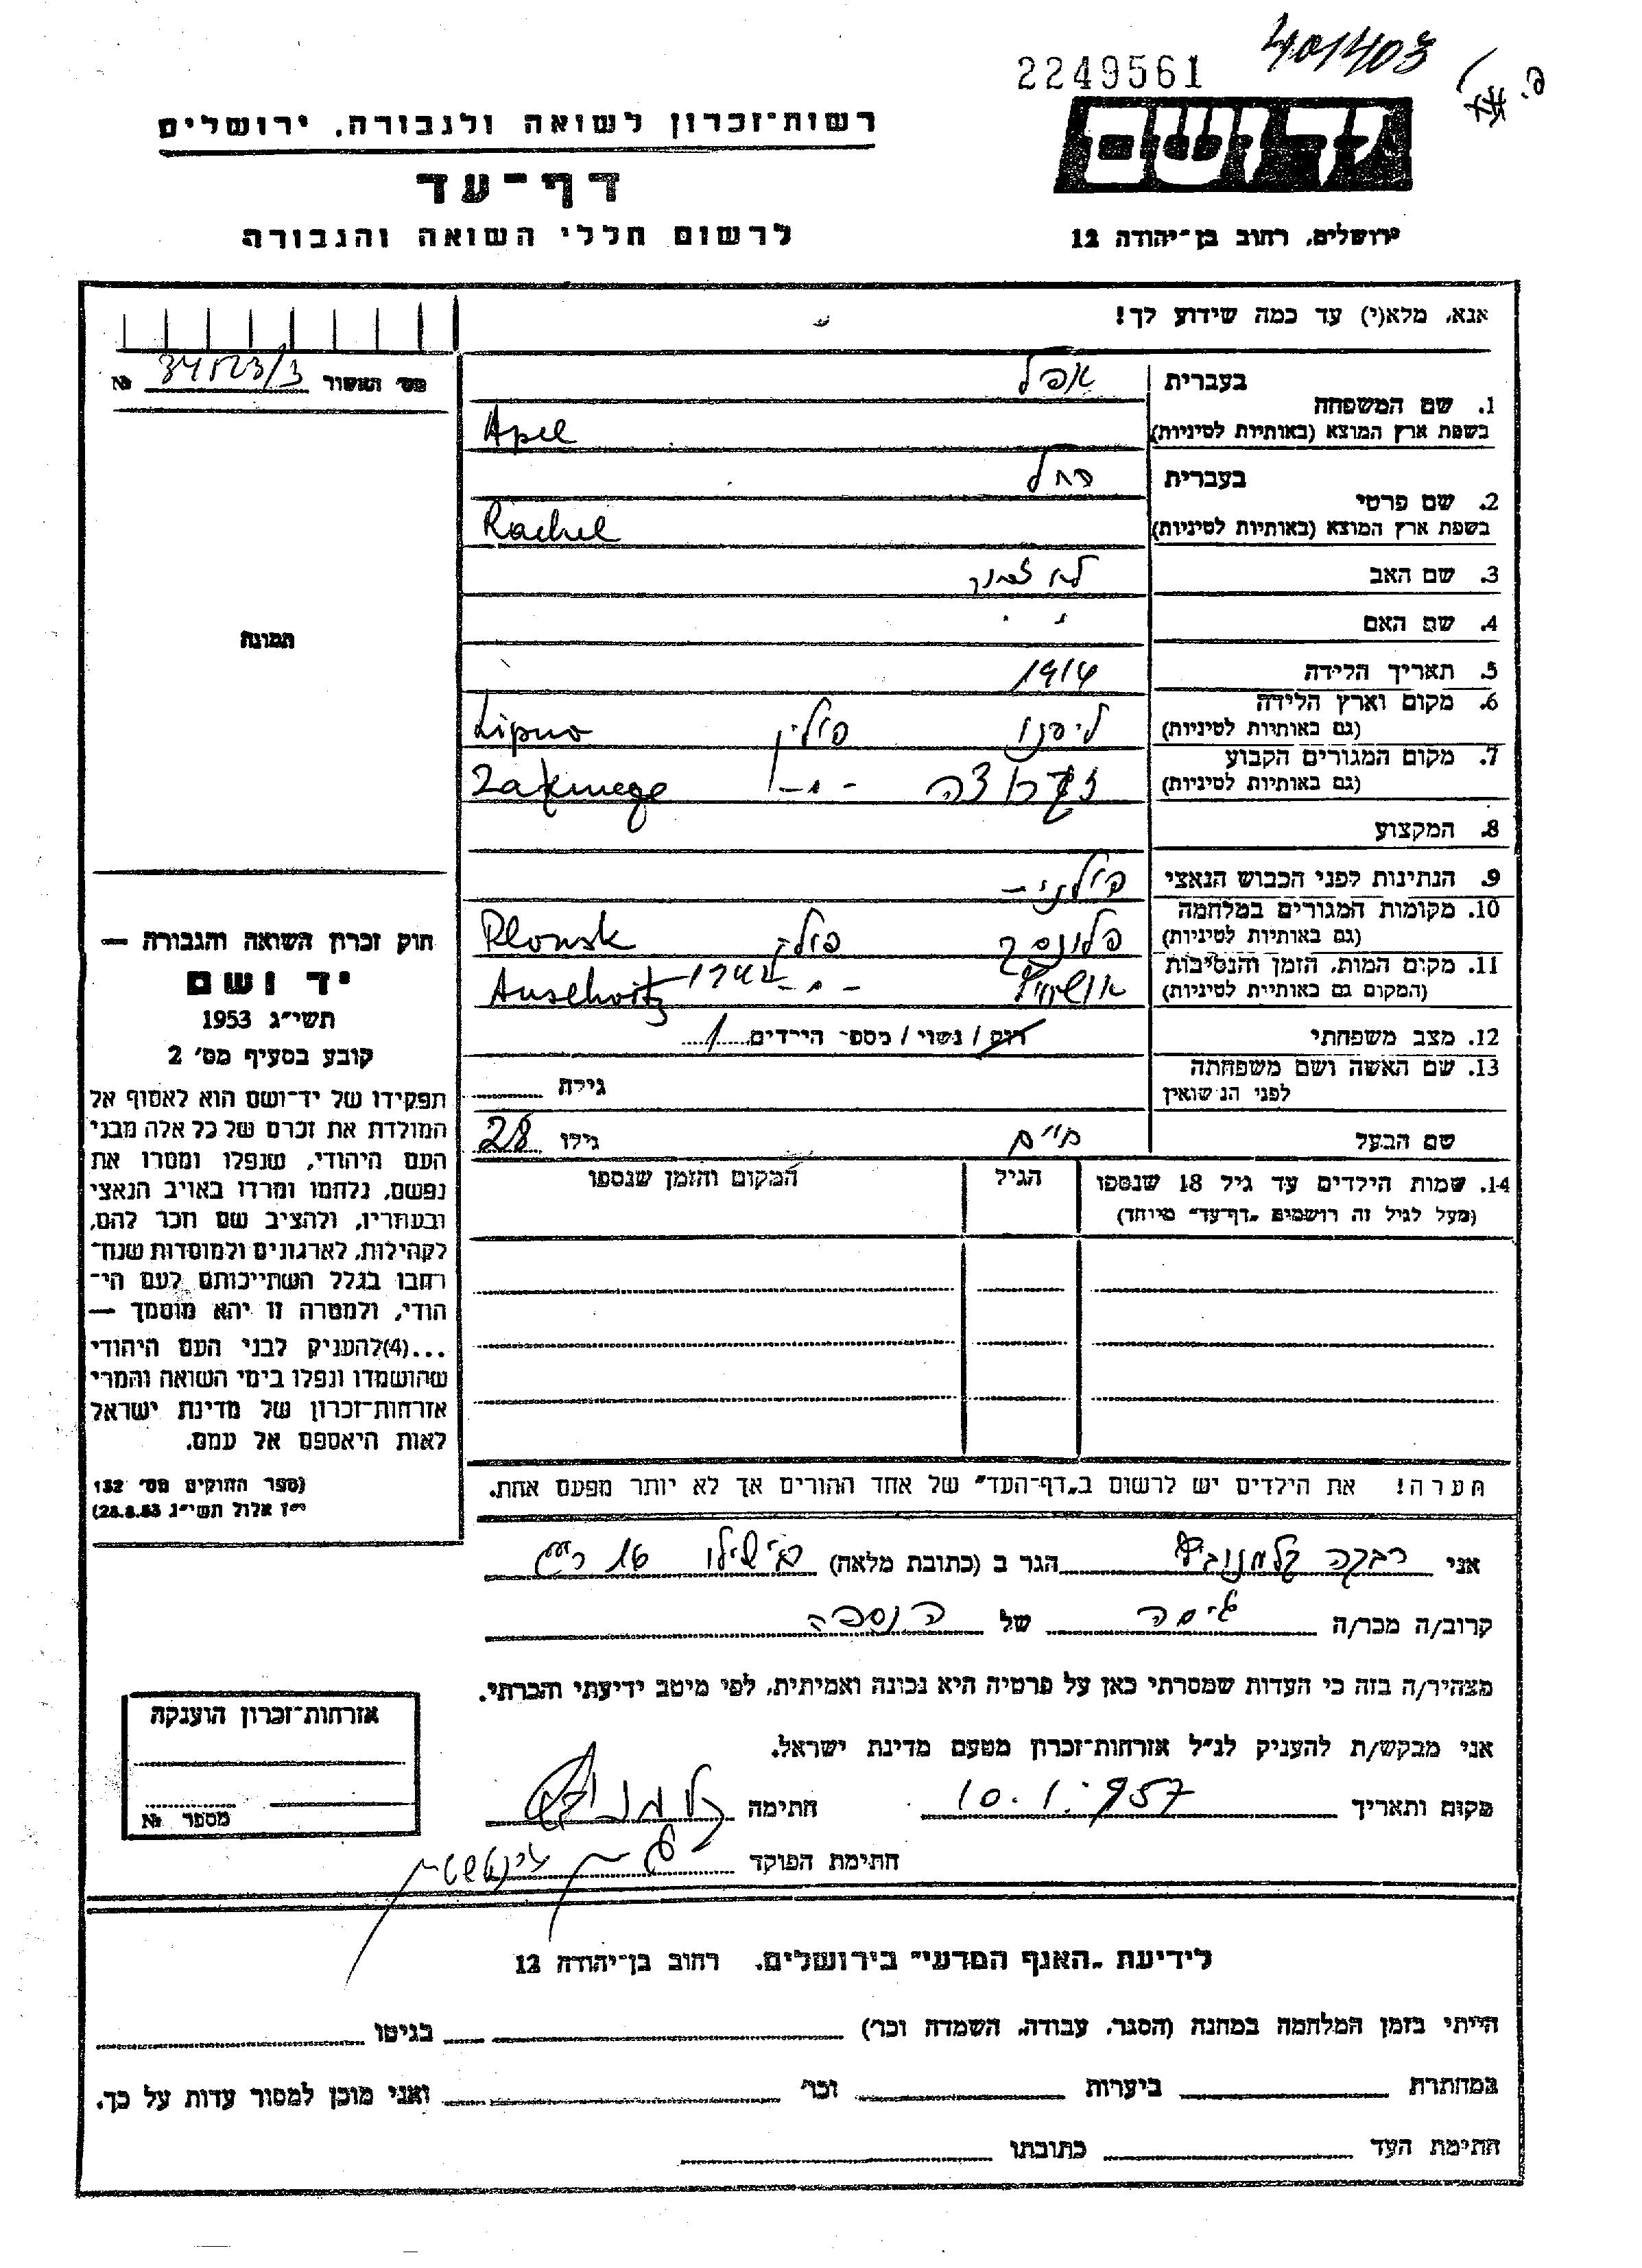 2249561
401403
רשות־זכרון לשואה ולגבורה, ירושלים
דף־עד
לרשום חללי השואה והגבורה
יד ושם
ירושלים, רחוב בן־יהודה 12
אנא, מלא(י) עד כמה שידוע לך!
מס׳ האשור № 34523/3
תמונה
בעברית אפל
1. שם המשפחה
בשפת ארץ המוצא (באותיות לטיניות) Apel
בעברית רחל
2. שם פרטי
בשפת ארץ המוצא (באותיות לטיניות) Rachel
3. שם האב
4. שם האם
5. תאריך הלידה 1914
6. מקום וארץ הלידה
(גם באותיות לטיניות) ליפנו פולין Lipno
7. מקום המגורים הקבוע
(גם באותיות לטיניות) -״-
8. המקצוע
9. הנתינות לפני הכבוש הנאצי פולני-
10. מקומות המגורים במלחמה
(גם באותיות לטיניות) פלונסק פולין Plonsk
11. מקום המות, הזמן והנסיבות
(המקום גם באותיות לטיניות) אושויץ -״- 1942 Auschwitz
12. מצב משפחתי רווק / נשוי / מספר הילדים 1
13. שם האשה ושם משפחתה
לפני הנשואין גילה
שם הבעל חיים גילו 28
14. שמות הילדים עד גיל 18 שנספו הגיל המקום והזמן שנספו
(מעל לגיל זה רושמים „דף־עד״ מיוחד)
הערה! את הילדים יש לרשום ב„דף־העד״ של אחד ההורים אך לא יותר מפעם אחת.
חוק זכרון השואה והגבורה —
יד ושם
תשי״ג 1953
קובע בסעיף מס׳ 2
תפקידו של יד־ושם הוא לאסוף אל
המולדת את זכרם של כל אלה מבני
העם היהודי, שנפלו ומסרו את
נפשם, נלחמו ומרדו באויב הנאצי
ובעוזריו, ולהציב שם וזכר להם,
לקהילות, לארגונים ולמוסדות שנח־
רבו בגלל השתייכותם לעם הי־
הודי, ולמטרה זו יהא מוסמך —
...(4)להעניק לבני העם היהודי
שהושמדו ונפלו בימי השואה והמרי
אזרחות־זכרון של מדינת ישראל
לאות היאספם אל עמם.
(ספר החוקים מס׳ 132
י״ז אלול תשי״ג 28.8.53)
אני רבקה קלמנוביץ הגר ב (כתובת מלאה)
קרוב/ה מכר/ה גיסה של הנספה
מצהיר/ה בזה כי העדות שמסרתי כאן על פרטיה היא נכונה ואמיתית, לפי מיטב ידיעתי והכרתי.
אני מבקש/ת להעניק לנ״ל אזרחות־זכרון מטעם מדינת ישראל.
מקום ותאריך 10.1.957 חתימה
חתימת הפוקד
אזרחות־זכרון הוענקה
מספר №
לידיעת „האגף המדעי״ בירושלים, רחוב בן־יהודה 12
הייתי בזמן המלחמה במחנה (הסגר, עבודה, השמדה וכו׳) בגיטו
במחתרת ביערות וכו׳ ואני מוכן למסור עדות על כך.
חתימת העד כתובתו